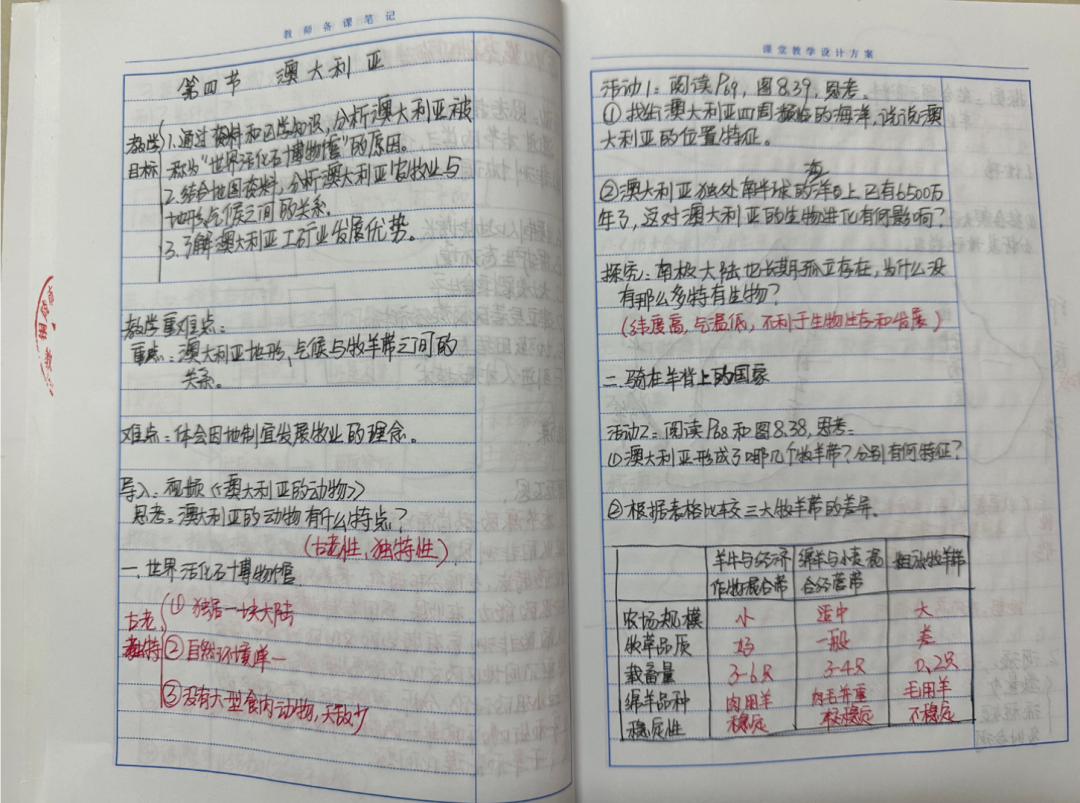 教师备课笔记
第四节 澳大利亚
教学目标
1.通过资料和已学知识，分析澳大利亚被
称为"世界活化石博物馆"的原因。
2.结合地图资料，分析澳大利亚农牧业与
地形气候之间的关系。
3.了解澳大利亚工矿业发展优势。
教学重难点：
重点：澳大利亚地形，气候与牧羊带之间的
关系。
难点：体会因地制宜发展牧业的理念。
导入：视频《澳大利亚的动物》
思考：澳大利亚的动物有什么特点？
(古老性，独特性)
一.世界活化石博物馆
古老
独特
① 独居一块大陆
② 自然环境单一
③ 没有大型食肉动物，天敌少
课堂教学设计方案
活动1：阅读P69，图8.39，思考。
①找出澳大利亚四周濒临的海洋，说说澳
大利亚的位置特征。
②澳大利亚独处南半球的海洋上已有6500万
年了，这对澳大利亚的生物进化有何影响？
探究：南极大陆也长期孤立存在，为什么没
有那么多特有生物？
(纬度高，气温低，不利于生物生存和发展)
二.骑在羊背上的国家
活动2：阅读P68和图8.38，思考：
①澳大利亚形成了哪几个牧羊带？分别有何特征？
②根据表格比较三大牧羊带的差异。
羊牛与经济 绵羊与小麦混 粗放牧羊带
作物混合带 合经营带
农场规模 小 适中 大
牧草品质 好 一般 差
载畜量 3-6只 3-4只 0.2只
绵羊品种 肉用羊 肉毛并重 毛用羊
稳定性 稳定 较稳定 不稳定